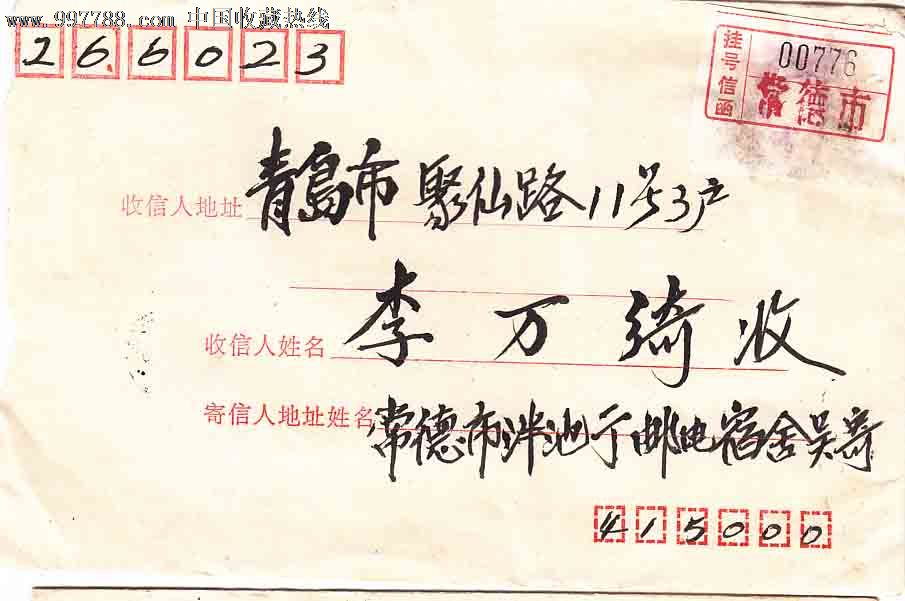 www.997788.com 中国收藏热线
266023
挂号信函
00776
常德市
收信人地址 青岛市聚仙路11号3户
收信人姓名 李万绮收
寄信人地址姓名 常德市泮池于邮电宿舍吴寄
415000